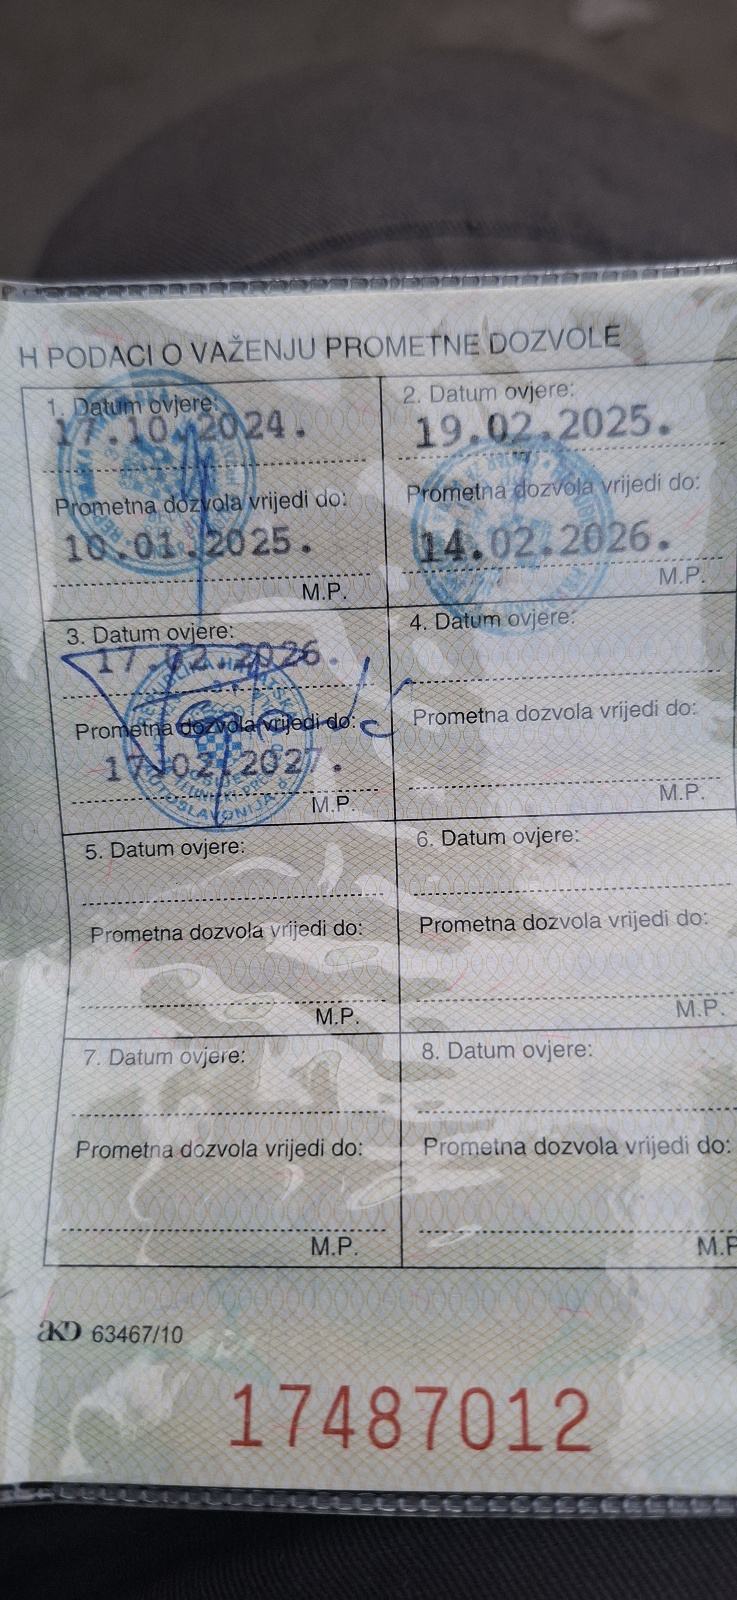 H PODACI O VAŽENJU PROMETNE DOZVOLE
1. Datum ovjere:
17.10.2024.
Prometna dozvola vrijedi do:
10.01.2025.
M.P.
2. Datum ovjere:
19.02.2025.
Prometna dozvola vrijedi do:
14.02.2026.
M.P.
3. Datum ovjere:
17.02.2026.
Prometna dozvola vrijedi do:
17.02.2027.
M.P.
4. Datum ovjere:
Prometna dozvola vrijedi do:
M.P.
5. Datum ovjere:
Prometna dozvola vrijedi do:
M.P.
6. Datum ovjere:
Prometna dozvola vrijedi do:
M.P.
7. Datum ovjere:
Prometna dozvola vrijedi do:
M.P.
8. Datum ovjere:
Prometna dozvola vrijedi do:
M.P.
AKD 63467/10
17487012